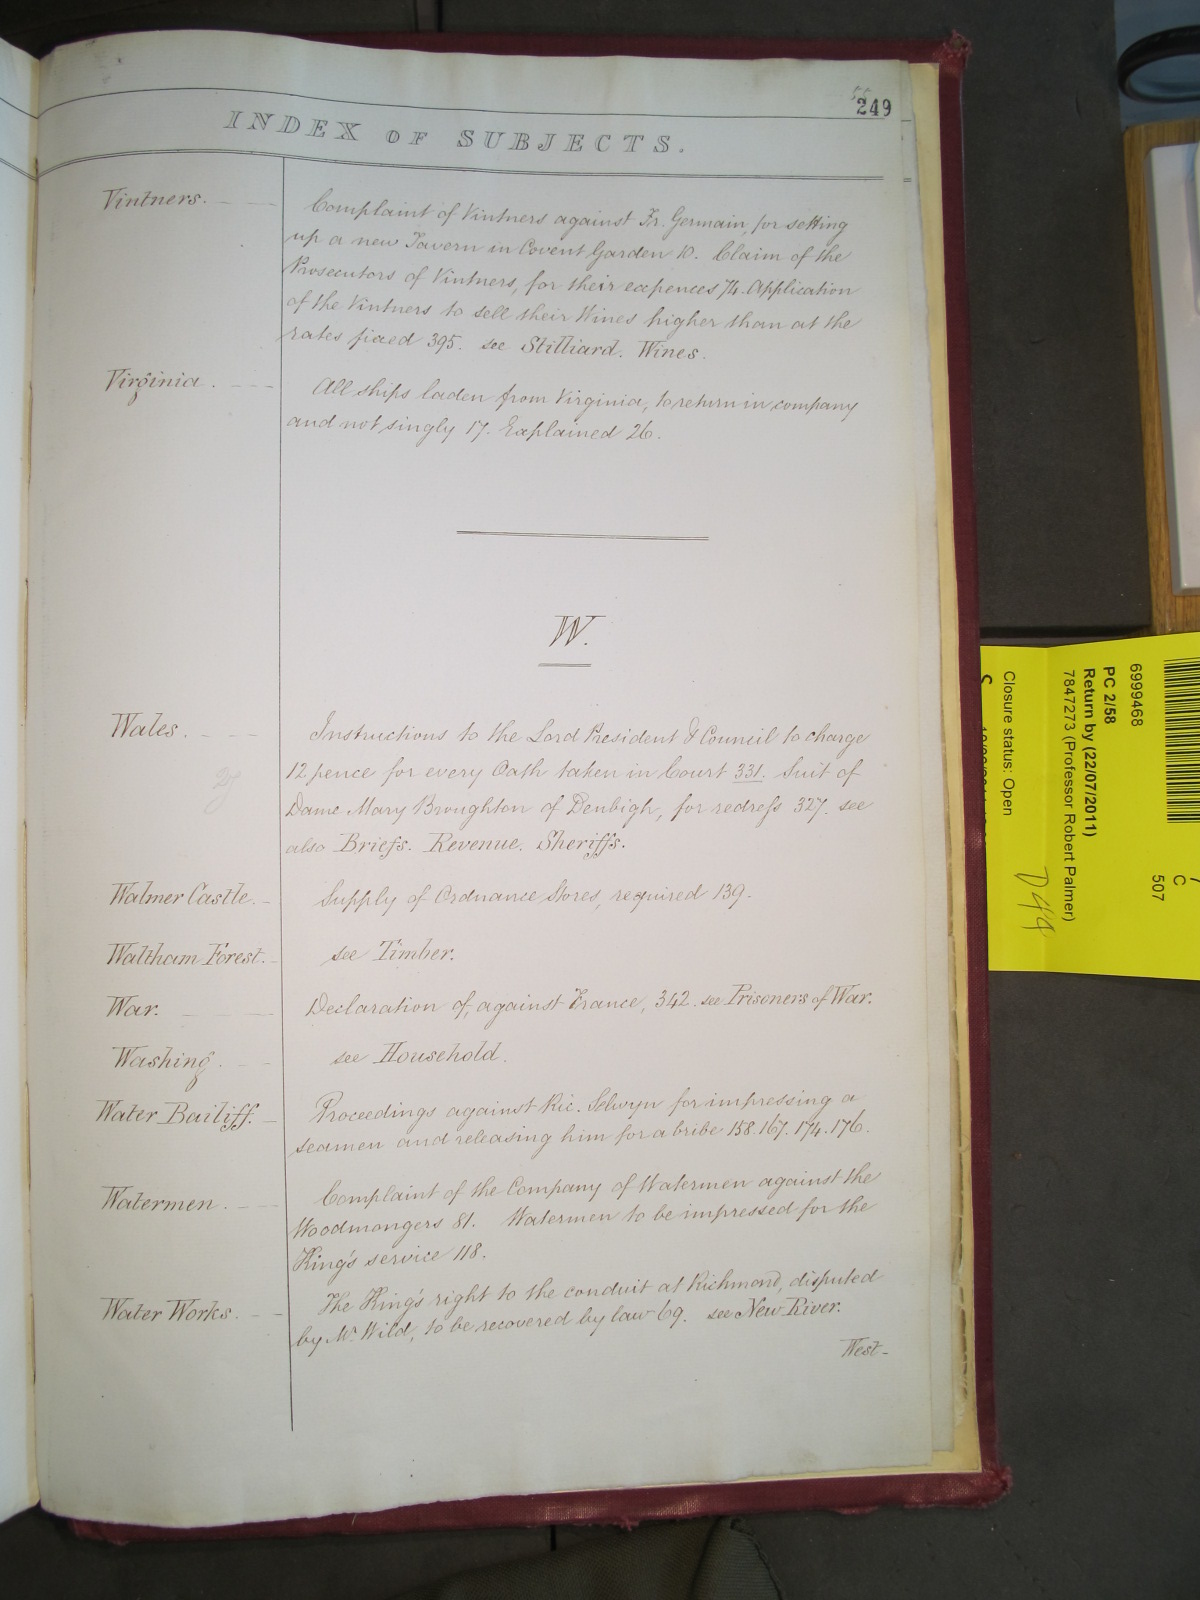 55
249
INDEX OF SUBJECTS.
Vintners.
Complaint of Vintners against Fr. Germain, for setting
up a new Tavern in Covent Garden 10. Claim of the
Prosecutors of Vintners, for their expences 74. Application
of the Vintners to sell their Wines higher than at the
rates fixed 395. see Stilliard. Wines.
Virginia.
All ships laden from Virginia, to return in company
and not singly 17. Explained 26.
W.
Wales.
Instructions to the Lord President & Council to charge
12 pence for every Oath taken in Court 331. Suit of
Dame Mary Broughton of Denbigh, for redress 327. see
also Briefs. Revenue. Sheriffs.
Walmer Castle.
Supply of Ordnance Stores, required 139.
Waltham Forest.
see Timber.
War.
Declaration of, against France, 342. see Prisoners of War.
Washing.
see Household.
Water Bailiff.
Proceedings against Ric. Selwyn for impressing a
seamen and releasing him for a bribe 158. 167. 174. 176.
Watermen.
Complaint of the Company of Watermen against the
Woodmongers 81. Watermen to be impressed for the
King's service 118.
Water Works.
The King's right to the conduit at Richmond, disputed
by Mr Wild, to be recovered by law 69. see New River.
West-
6999468
PC 2/58
Return by (22/07/2011)
7847273 (Professor Robert Palmer)
Closure status: Open
C
507
D49